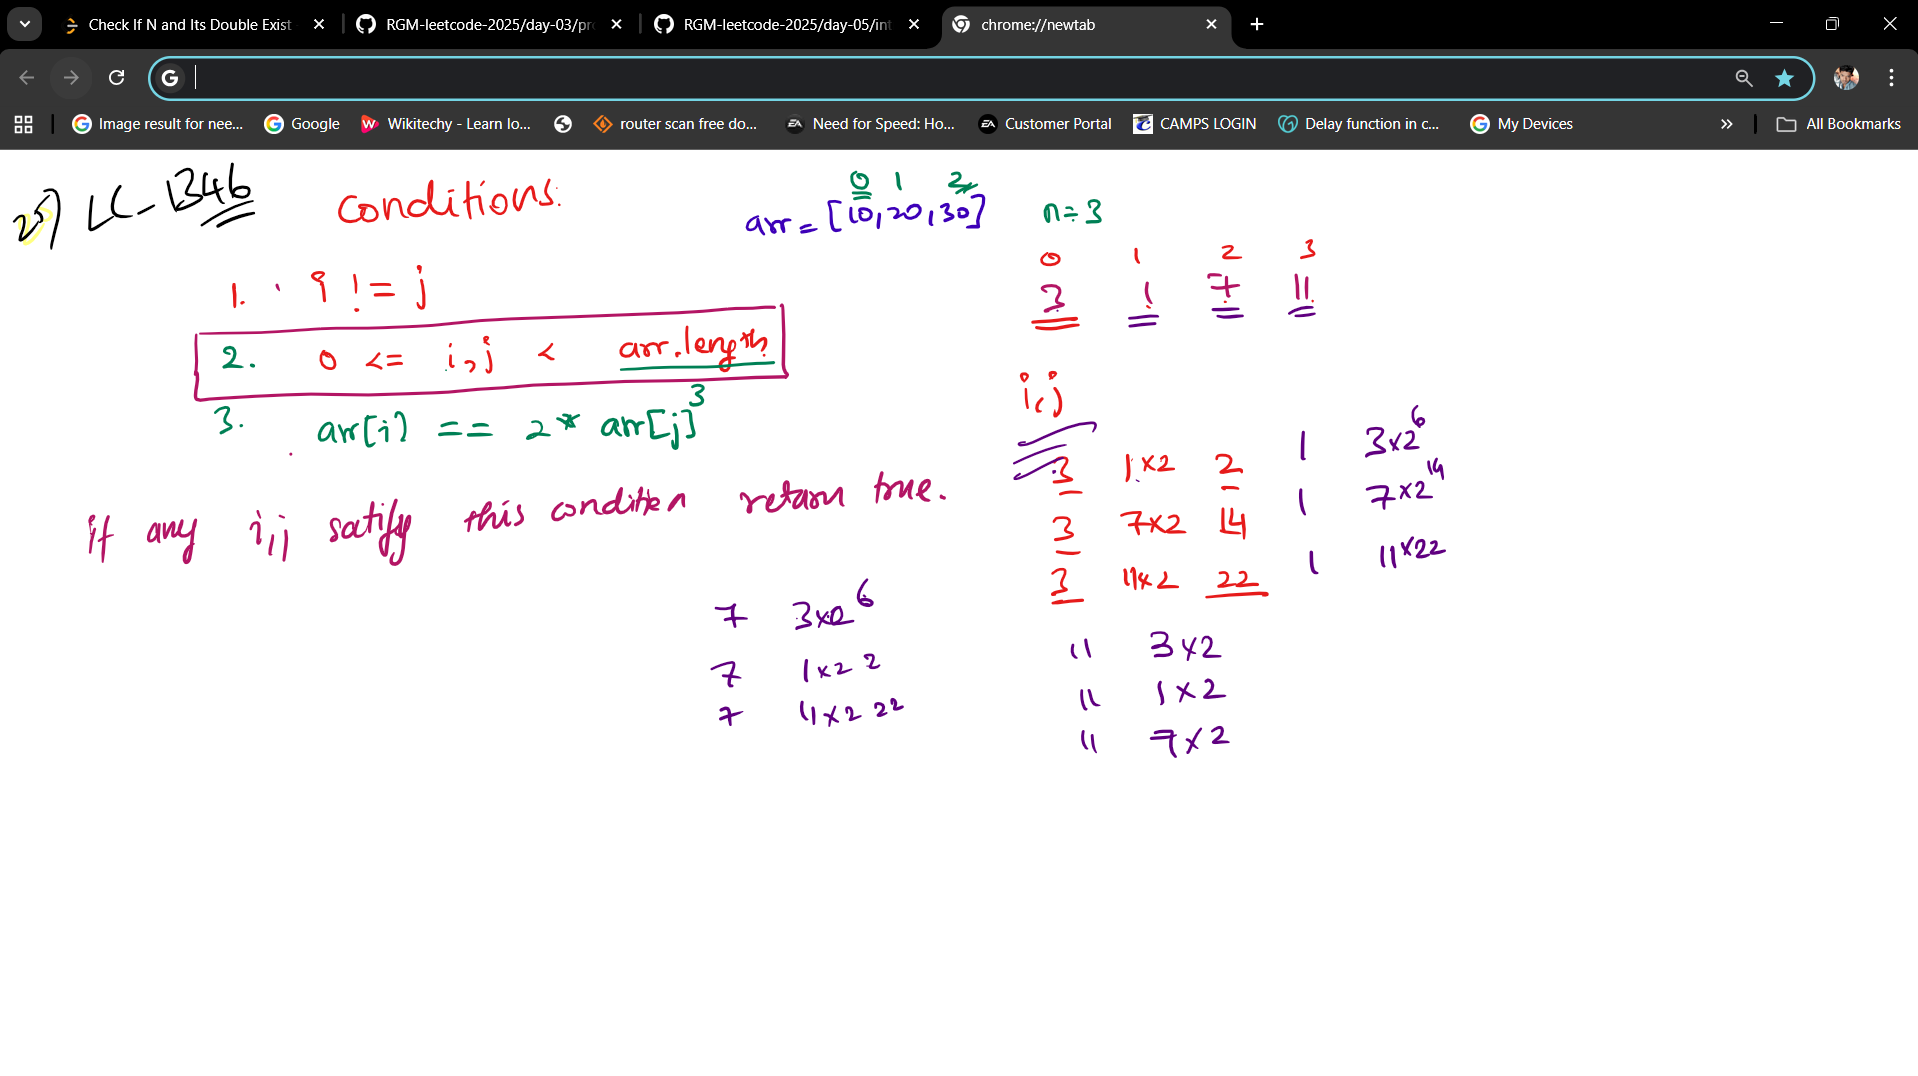 Check If N and Its Double Exist
RGM-leetcode-2025/day-03/pr
RGM-leetcode-2025/day-05/int
chrome://newtab
Image result for nee...
Google
Wikitechy - Learn lo...
router scan free do...
Need for Speed: Ho...
Customer Portal
CAMPS LOGIN
Delay function in c...
My Devices
All Bookmarks
25) LC-1346
conditions:
0 1 2
arr = [10,20,30]
n=3
0 1 2 3
3 1 7 11
1. i != j
2. 0 <= i,j < arr.length
3. arr[i] == 2* arr[j] 3
if any i,j satify this condition return true.
i,j
3 1x2 2
3 7x2 14
3 11x2 22
1 3x2 6
1 7x2 14
1 11x22
7 3x2 6
7 1x2 2
7 11x2 22
11 3x2
11 1x2
11 7x2